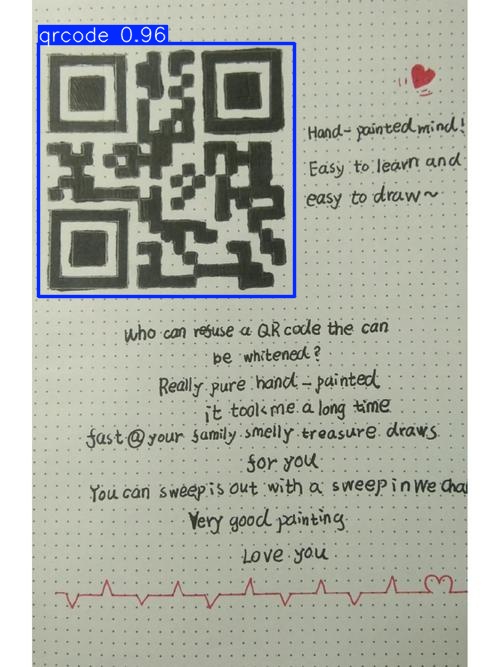 qrcode 0.96
Hand-painted mind!
Easy to learn and
easy to draw~
Who can refuse a QR code the can
be whitened?
Really pure hand-painted
it took me a long time
fast @ your family smelly treasure draws
for you
You can sweep is out with a sweep in We Cha
Very good painting
Love you